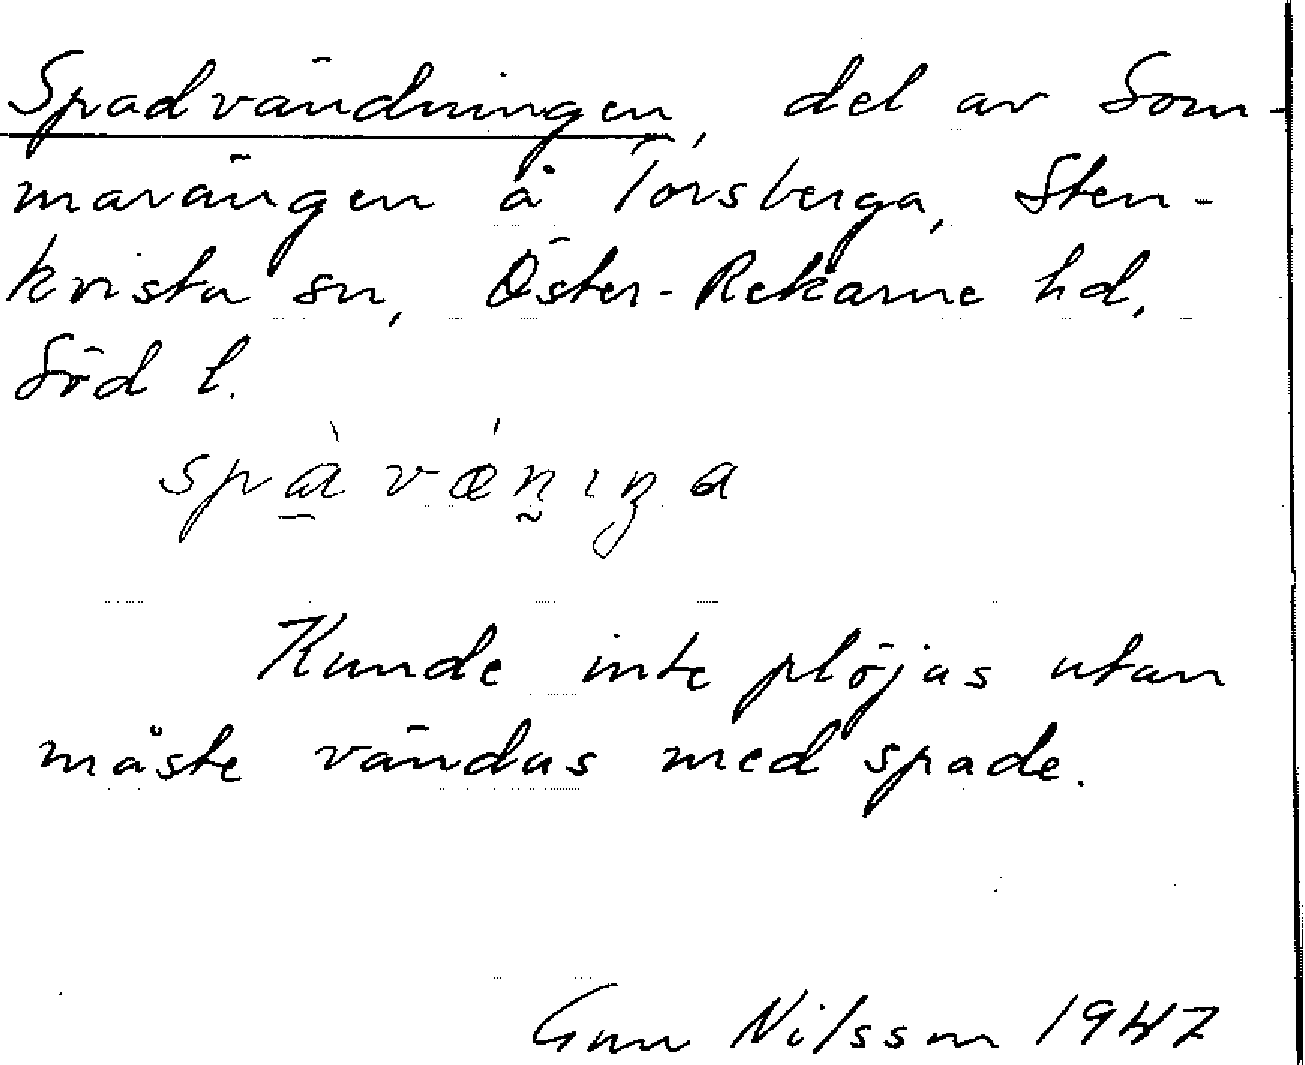 Spadvändningen, del av Som-
marängen å Torsberga, Sten-
kvista sn, Öster-Rekarne hd,
Söd l.
Kunde inte plöjas utan
måste vändas med spade.
Gun Nilsson 1947